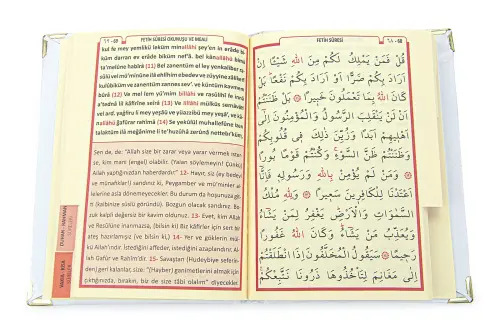 ٦٨ - 68 FETİH SÛRESİ OKUNUŞU VE MEALİ
kul fe mey yemlikü leküm minallâhi şey'en in erâde bi-
küm darran ev erâde biküm nef'â. bel kânallâhü bimâ
ta'melûne habîrâ (11) Bel zanentüm el ley yenkaliber ra-
sûlü vel mü'minûne ilâ ehlîhim ebedev ve züyyine zâlike fî
kulûbiküm ve zanentüm zannes sev'. ve küntüm kavmem
bûrâ (12) Ve mel lem yü'mim billâhi ve rasûlihî fe innâ
a'tednâ lil kâfirîne seîrâ (13) Ve lillâhi mülküs semâvâti
vel ard. yağfiru li mey yeşâü ve yüazzibü mey yeşâ'. ve kâ-
nallâhü ğafûrar rahîmâ (14) Se yekûlül muhallefûne izen
talaktüm ilâ meğânime li te'huzûhâ zerûnâ nettebi'küm,
Sen de, de: "Allah size bir zarar veya yarar vermek ister-
se, kim mani (engel) olabilir. (Yalan söylemeyin! Çünkü)
Allah yaptığınızdan haberdardır." 12- Hayır, siz (ey bedevi
ve münafıklar!) sandınız ki, Peygamber ve mü'minler ai-
lelerine asla dönemeyecekler. Bu durum da hoşunuza git-
ti (kalbinize süslü göründü). Bozgun olacak sandınız. Bo-
zuk kalpli değersiz bir kavim oldunuz. 13- Evet, kim Allah
ve Resûlüne inanmazsa, (bilsin ki) Biz kâfirler için sert bir
ateş hazırlamışız (ve bilsin ki.) 14- Yer ve göklerin mül-
kü Allah'ındır. İstediğini affeder, istediğini azaplandırır. Al-
lah Gafûr ve Rahîm'dir. 15- Savaştan (Hudeybiye seferin-
den) geri kalanlar, size: "(Hayber) ganimetlerini almak için
çıktığınızda, bırakın, biz de size tâbi olalım" diyecekler.
٦٨ - 68 FETİH SÛRESİ
قُلْ فَمَنْ يَمْلِكُ لَكُمْ مِنَ اللّٰهِ شَيْئًا اِنْ
اَرَادَ بِكُمْ ضَرًّا اَوْ اَرَادَ بِكُمْ نَفْعًا بَلْ
كَانَ اللّٰهُ بِمَا تَعْمَلُونَ خَبِيرًا ﴿١١﴾ بَلْ ظَنَنْتُمْ
اَنْ لَنْ يَنْقَلِبَ الرَّسُولُ وَالْمُؤْمِنُونَ اِلٰى
اَهْلِيهِمْ اَبَدًا وَزُيِّنَ ذٰلِكَ فِى قُلُوبِكُمْ
وَظَنَنْتُمْ ظَنَّ السَّوْءِ وَكُنْتُمْ قَوْمًا بُورًا
﴿١٢﴾ وَمَنْ لَمْ يُؤْمِنْ بِاللّٰهِ وَرَسُولِهِ فَاِنَّا
اَعْتَدْنَا لِلْكَافِرِينَ سَعِيرًا ﴿١٣﴾ وَلِلّٰهِ مُلْكُ
السَّمٰوَاتِ وَالْاَرْضِ يَغْفِرُ لِمَنْ يَشَاءُ
وَيُعَذِّبُ مَنْ يَشَاءُ وَكَانَ اللّٰهُ غَفُورًا
رَحِيمًا ﴿١٤﴾ سَيَقُولُ الْمُخَلَّفُونَ اِذَا انْطَلَقْتُمْ
اِلٰى مَغَانِمَ لِتَأْخُذُوهَا ذَرُونَا نَتَّبِعْكُمْ